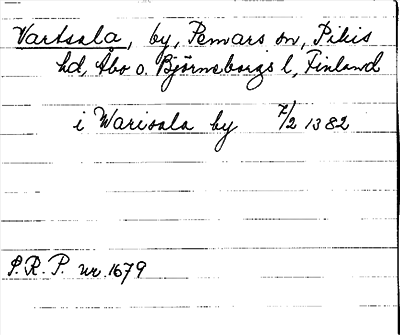 Vartsala, by, Pemars sn, Pikis
hd, Åbo o. Björneborgs l, Finland
i Warisala by 7/2 1382
S.R.P. nr. 1679